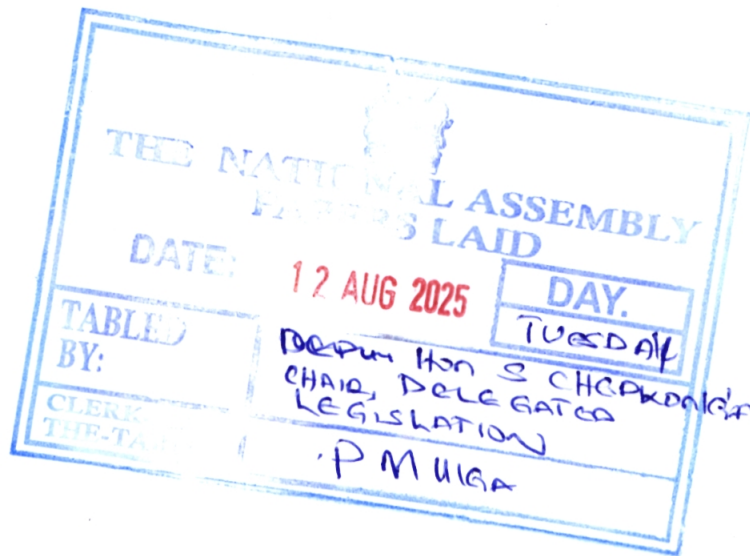 THE NATIONAL ASSEMBLY
PAPERS LAID
DATE: 12 AUG 2025
DAY.
TUESDAY
TABLED
BY:
Hon S CHEPKONG'A
CHAIR, DELEGATED
LEGISLATION
CLERK
THE-TA
P MUIGA